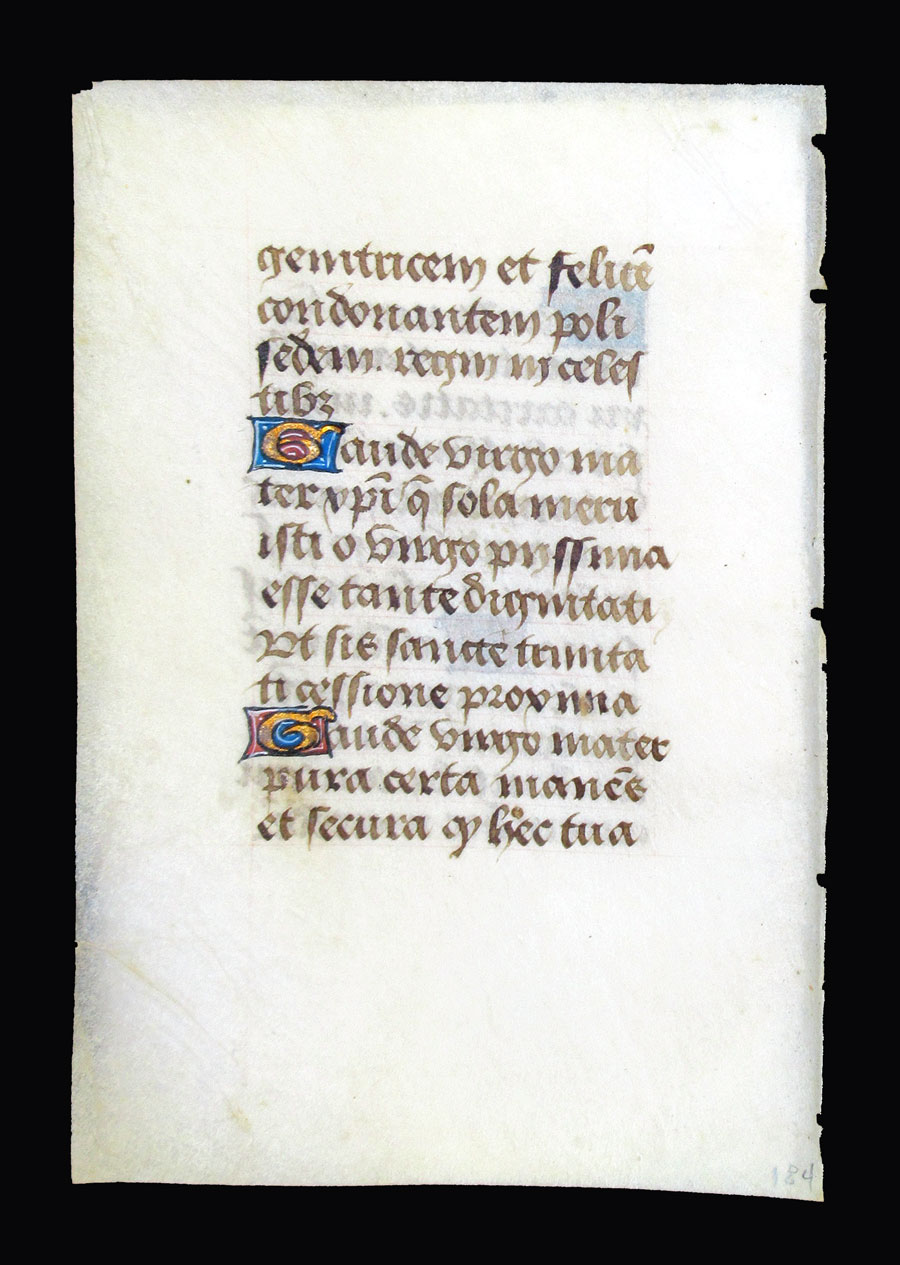 genitricem et felicē
condonantem poli
sedem. regni in celes
tibꝫ
Gaude virgo ma
ter xp̄i q̄ sola meru
isti o virgo pijssima
esse tante dignitati
Vt sis sancte trinita
ti cessione proxima
Gaude virgo mater
pura certa manēs
et secura ꝙ hec tua
184